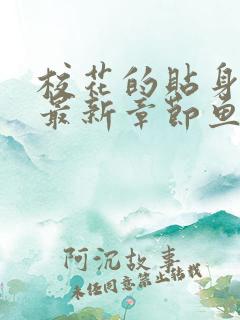 校花的贴身
最新章节鱼
阿沉故事
未经同意禁止转载